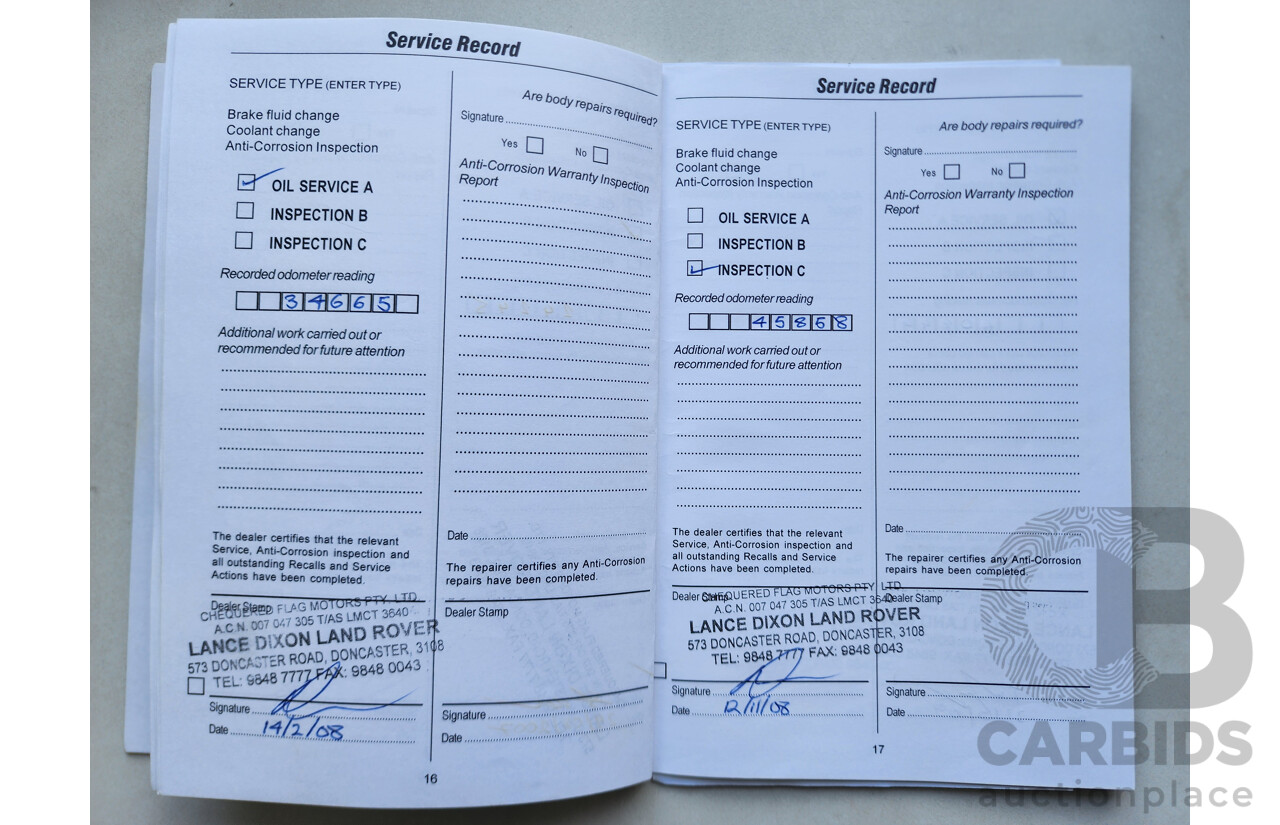 Service Record
SERVICE TYPE (ENTER TYPE)
Brake fluid change
Coolant change
Anti-Corrosion Inspection
OIL SERVICE A
INSPECTION B
INSPECTION C
Recorded odometer reading
34665
Additional work carried out or
recommended for future attention
The dealer certifies that the relevant
Service, Anti-Corrosion inspection and
all outstanding Recalls and Service
Actions have been completed.
Dealer Stamp
CHEQUERED FLAG MOTORS PTY. LTD.
A.C.N. 007 047 305 T/AS LMCT 3640
LANCE DIXON LAND ROVER
573 DONCASTER ROAD, DONCASTER, 3108
TEL: 9848 7777 FAX: 9848 0043
Signature
Date 14/2/08
Are body repairs required?
Signature
Yes No
Anti-Corrosion Warranty Inspection
Report
Date
The repairer certifies any Anti-Corrosion
repairs have been completed.
Dealer Stamp
Signature
Date
16
Service Record
SERVICE TYPE (ENTER TYPE)
Brake fluid change
Coolant change
Anti-Corrosion Inspection
OIL SERVICE A
INSPECTION B
INSPECTION C
Recorded odometer reading
45868
Additional work carried out or
recommended for future attention
The dealer certifies that the relevant
Service, Anti-Corrosion inspection and
all outstanding Recalls and Service
Actions have been completed.
Dealer Stamp
CHEQUERED FLAG MOTORS PTY. LTD.
A.C.N. 007 047 305 T/AS LMCT 3640
LANCE DIXON LAND ROVER
573 DONCASTER ROAD, DONCASTER, 3108
TEL: 9848 7777 FAX: 9848 0043
Signature
Date 12/11/08
Are body repairs required?
Signature
Yes No
Anti-Corrosion Warranty Inspection
Report
Date
The repairer certifies any Anti-Corrosion
repairs have been completed.
Dealer Stamp
Signature
Date
17
CB
CARBIDS
auctionplace